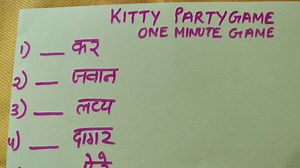 KITTY PARTYGAME
ONE MINUTE GAME
1) __ कर
2) __ जवान
3) __ लव्य
4) __ दागर